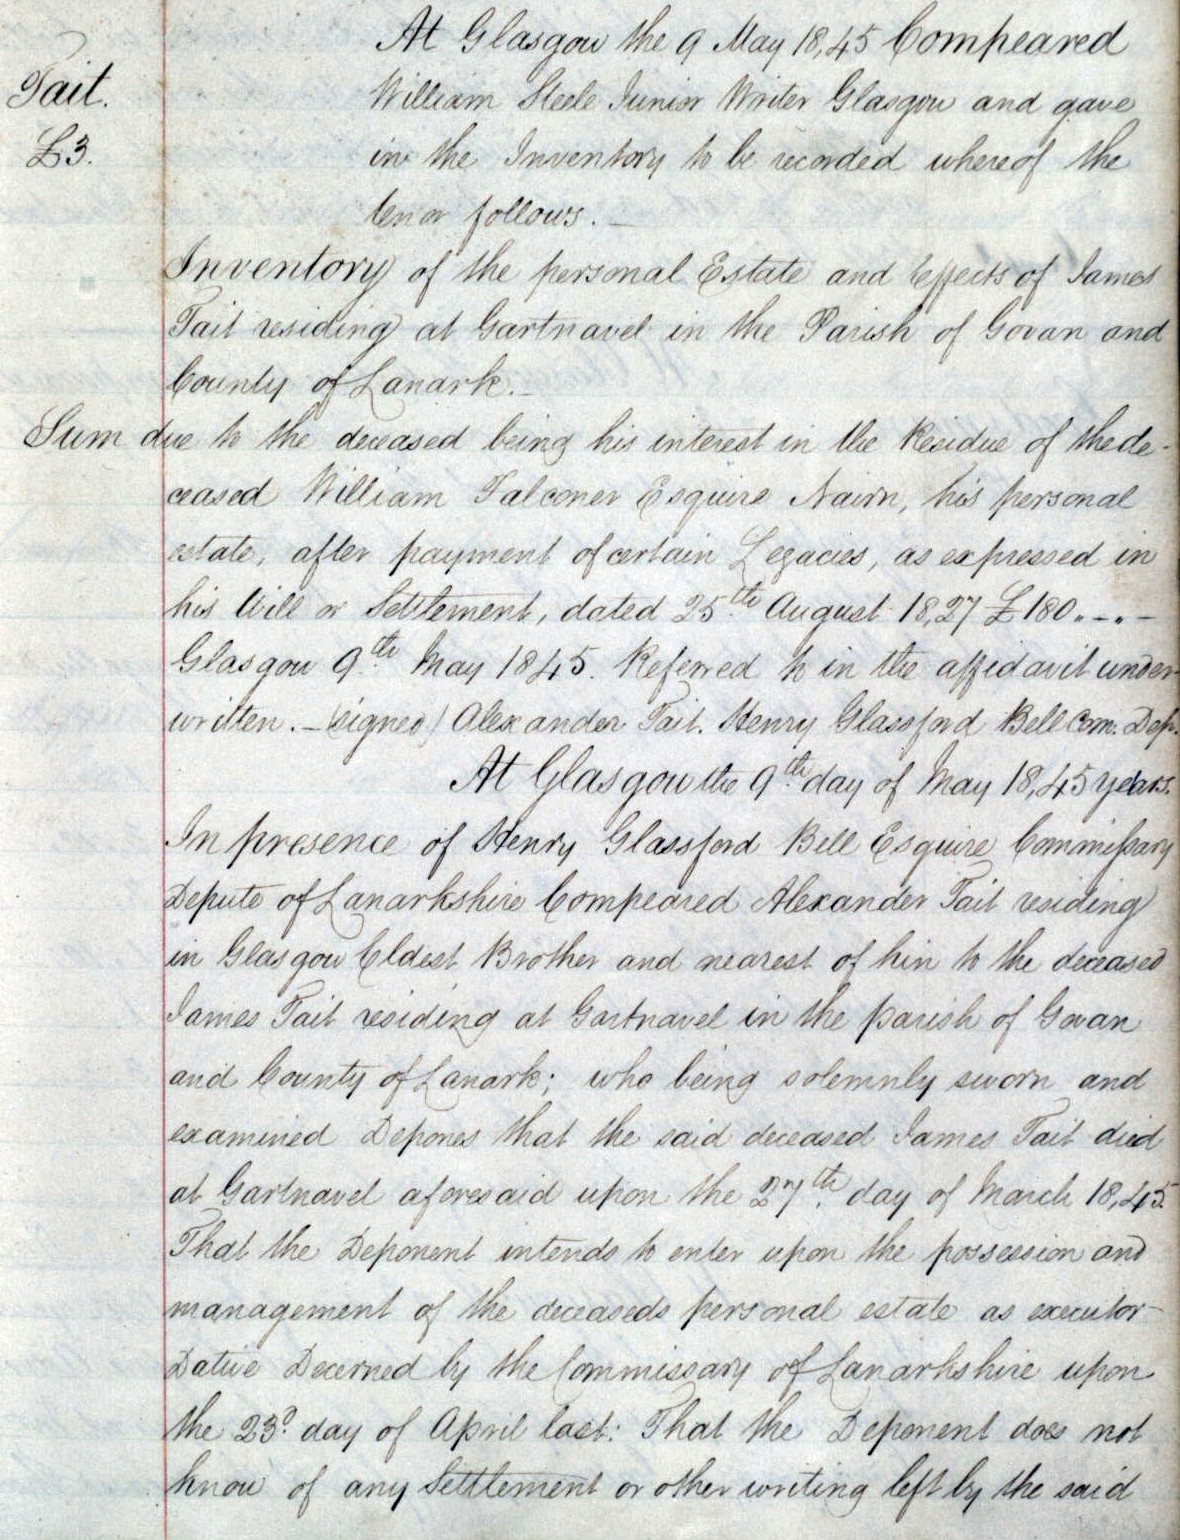 At Glasgow the 9 May 18,45 Compeared
Tait.
William Steele Junior Writer Glasgow and gave
£3.
in the Inventory to be recorded whereof the
tenor follows. —
Inventory of the personal Estate and Effects of James
Tait residing at Gartnavel in the Parish of Govan and
County of Lanark. —
Sum due to the deceased being his interest in the Residue of the de-
ceased William Falconer Esquire Nairn, his personal
estate, after payment of certain Legacies, as expressed in
his Will or Settlement, dated 25th August 18,27 £180 " – " –
Glasgow 9th May 1845. Referred to in the affidavit under-
written. – (signed) Alexander Tait. Henry Glassford Bell Com. Dep.
At Glasgow the 9th day of May 18,45 years.
In presence of Henry Glassford Bell Esquire Commissary
Depute of Lanarkshire Compeared Alexander Tait residing
in Glasgow Eldest Brother and nearest of kin to the deceased
James Tait residing at Gartnavel in the parish of Govan
and County of Lanark; who being solemnly sworn and
examined Depones that the said deceased James Tait died
at Gartnavel aforesaid upon the 27th day of March 18,45.
That the Deponent intends to enter upon the possession and
management of the deceaseds personal estate as executor-
Dative Decerned by the Commissary of Lanarkshire upon
the 23d day of April last: That the Deponent does not
know of any Settlement or other writing left by the said